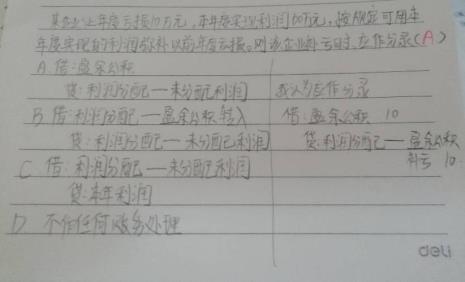 某企业上年度亏损10万元，本年度实现利润100万元，按规定可用本
年度实现的利润弥补以前年度亏损。则该企业补亏时，应作分录(A)
A 借：盈余公积
贷：利润分配——未分配利润
B 借：利润分配——盈余公积转入
贷：利润分配——未分配利润
C 借：利润分配——未分配利润
贷：本年利润
D 不作任何账务处理
我认为应作分录
借：盈余公积 10
贷：利润分配——盈余公积
补亏 10
deli